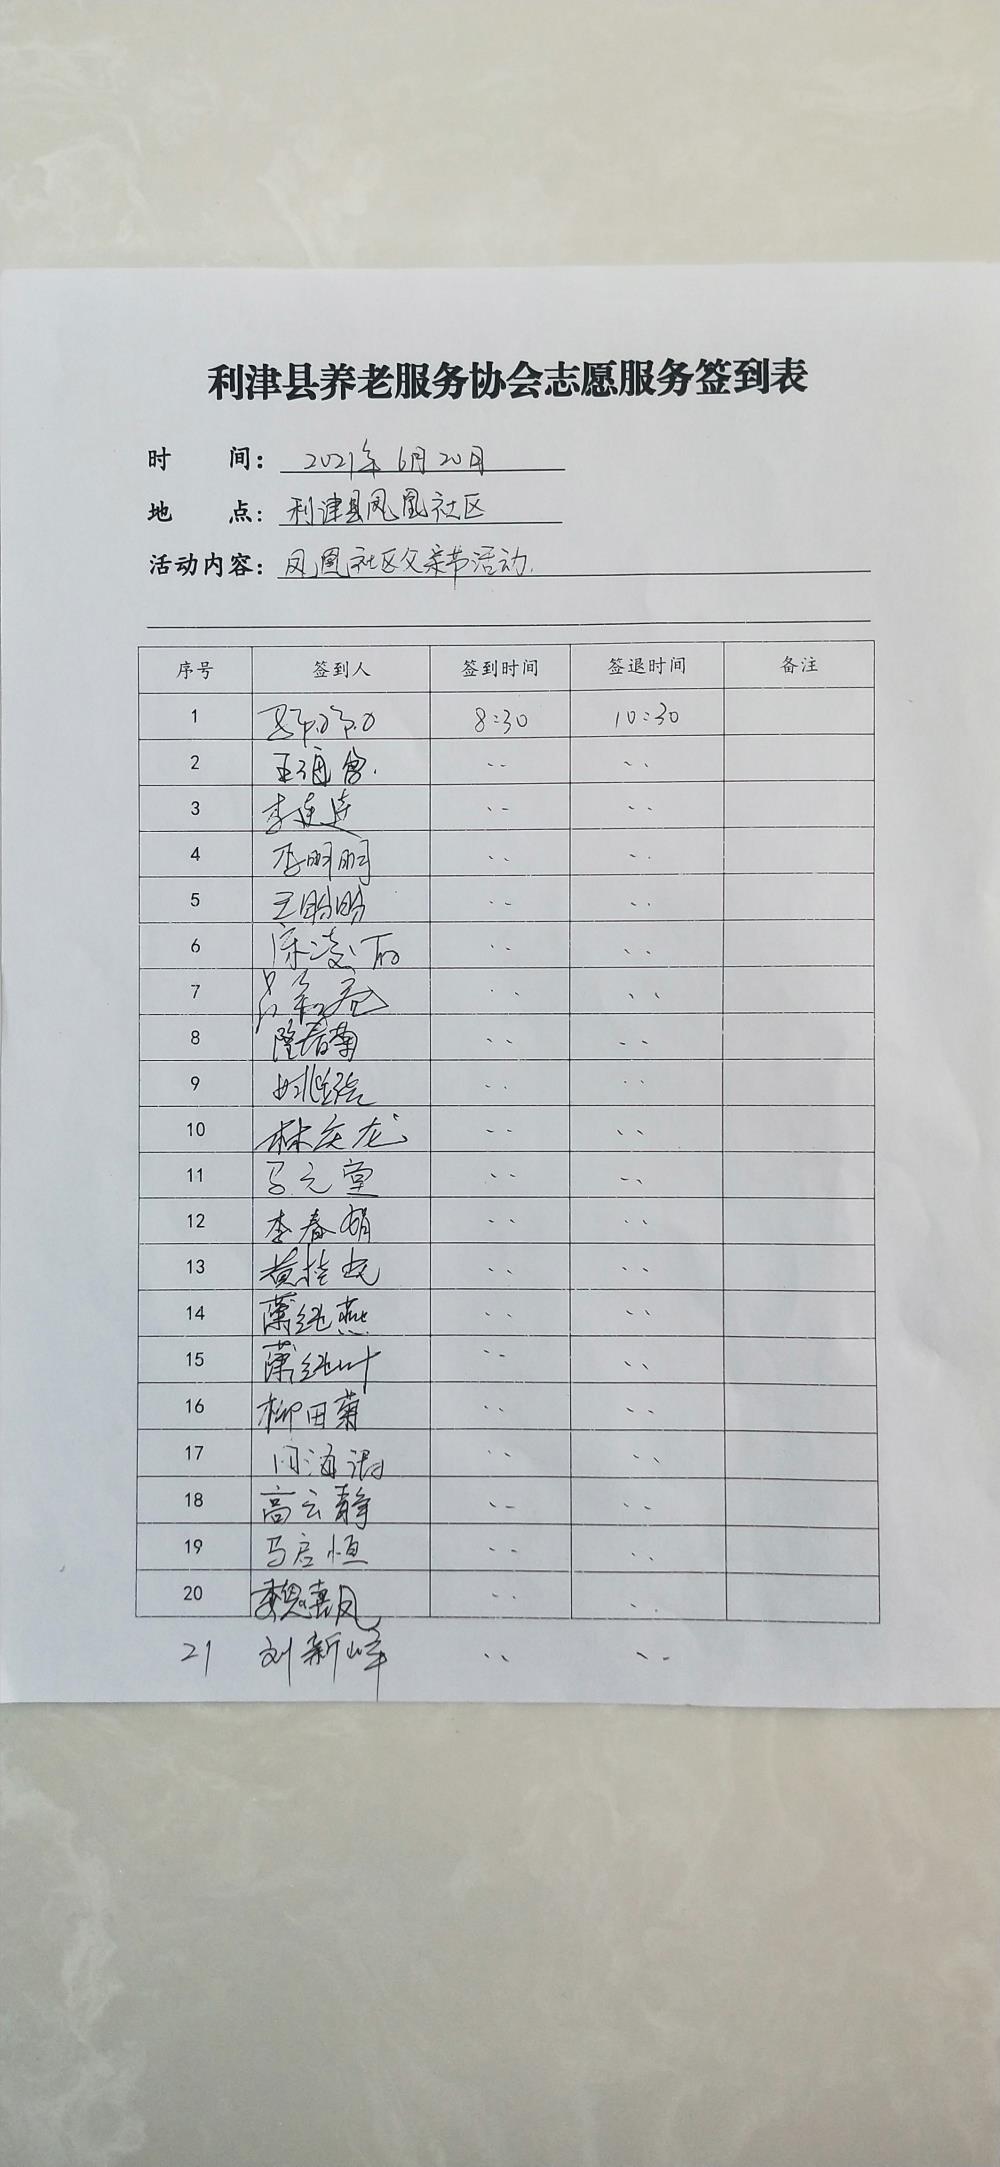 利津县养老服务协会志愿服务签到表
时 间： 2021年6月20日
地 点： 利津县凤凰社区
活动内容： 凤凰社区父亲节活动.
序号 签到人 签到时间 签退时间 备注
1 8:30 10:30
2 王海曾. 、、 、、
3 李连连 、、 、、
4 李明明 、、 、、
5 王盼盼 、、 、、
6 宋凌丽 、、 、、
7 、、 、、
8 隆春菊 、、 、、
9 、、 、、
10 林庆龙 、、 、、
11 马元堂 、、 、、
12 李春娟 、、 、、
13 黄桂 、、 、、
14 继燕 、、 、、
15 继叶 、、 、、
16 柳田菊 、、 、、
17 海 、、 、、
18 高云静 、、 、、
19 马启恒 、、 、、
20 魏喜凤 、、 、、
21 刘新峰 、、 、、